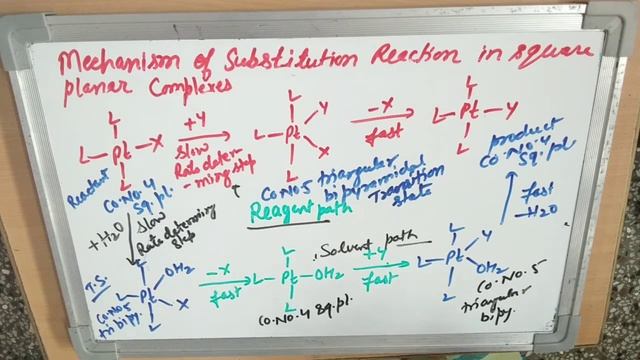 Mechanism of Substitution Reaction in square
planar Complexes
L
L—Pt—X
L
+Y
Slow
Rate deter-
-ming step
L
L—Pt
Y
X
L
-X
fast
L
L—Pt—Y
L
Reactant
Co.No.4
Sq.pl.
Co.No.5 triangular
bipyramidal
Transition
state
product
Co.No.4
Sq.pl.
Reagent path
+H2O
Slow
Rate determining
Step
fast
-H2O
Solvent path
T.S.
Co.No.5
tri bipy.
L
OH2
L
Pt
X
L
-X
fast
L
L—Pt—OH2
L
+Y
fast
L
L—Pt
Y
OH2
L
Co.No.4 Sq.pl.
Co.No.5
triangular
bipy.